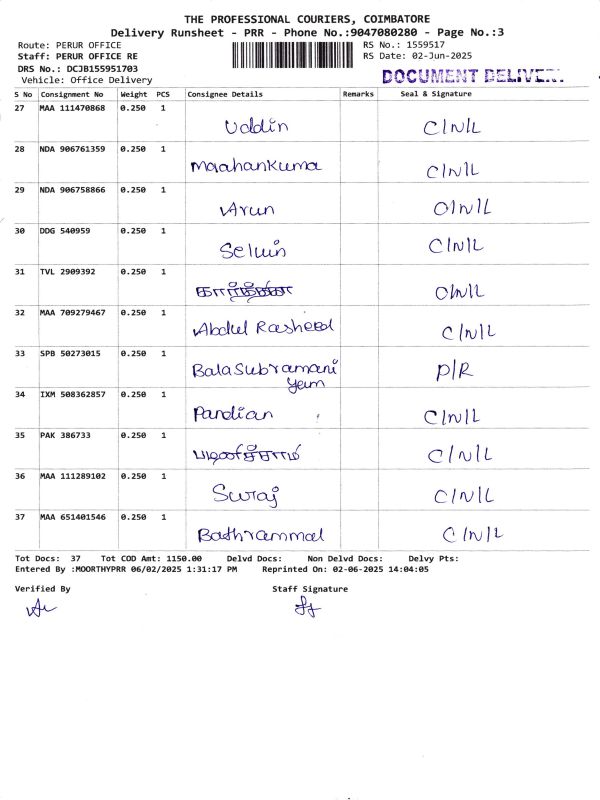 THE PROFESSIONAL COURIERS, COIMBATORE
Delivery Runsheet - PRR - Phone No.:9047080280 - Page No.:3
Route: PERUR OFFICE RS No.: 1559517
Staff: PERUR OFFICE RE RS Date: 02-Jun-2025
DRS No.: DCJB155951703
DOCUMENT DELIVER
Vehicle: Office Delivery
S No Consignment No Weight PCS Consignee Details Remarks Seal & Signature
27 MAA 111470868 0.250 1
Uddin C/N/L
28 NDA 906761359 0.250 1
Maahankuma C/N/L
29 NDA 906758866 0.250 1
Arun C/N/L
30 DDG 540959 0.250 1
Selvin C/N/L
31 TVL 2909392 0.250 1
C/N/L
32 MAA 709279467 0.250 1
Abdul Rasheed C/N/L
33 SPB 50273015 0.250 1
Balasubramani P/R
34 IXM 508362857 0.250 1
Pandian C/N/L
35 PAK 386733 0.250 1
C/N/L
36 MAA 111289102 0.250 1
Suraj C/N/L
37 MAA 651401546 0.250 1
Bathrammal C/N/L
Tot Docs: 37 Tot COD Amt: 1150.00 Delvd Docs: Non Delvd Docs: Delvy Pts:
Entered By :MOORTHYPRR 06/02/2025 1:31:17 PM Reprinted On: 02-06-2025 14:04:05
Verified By Staff Signature